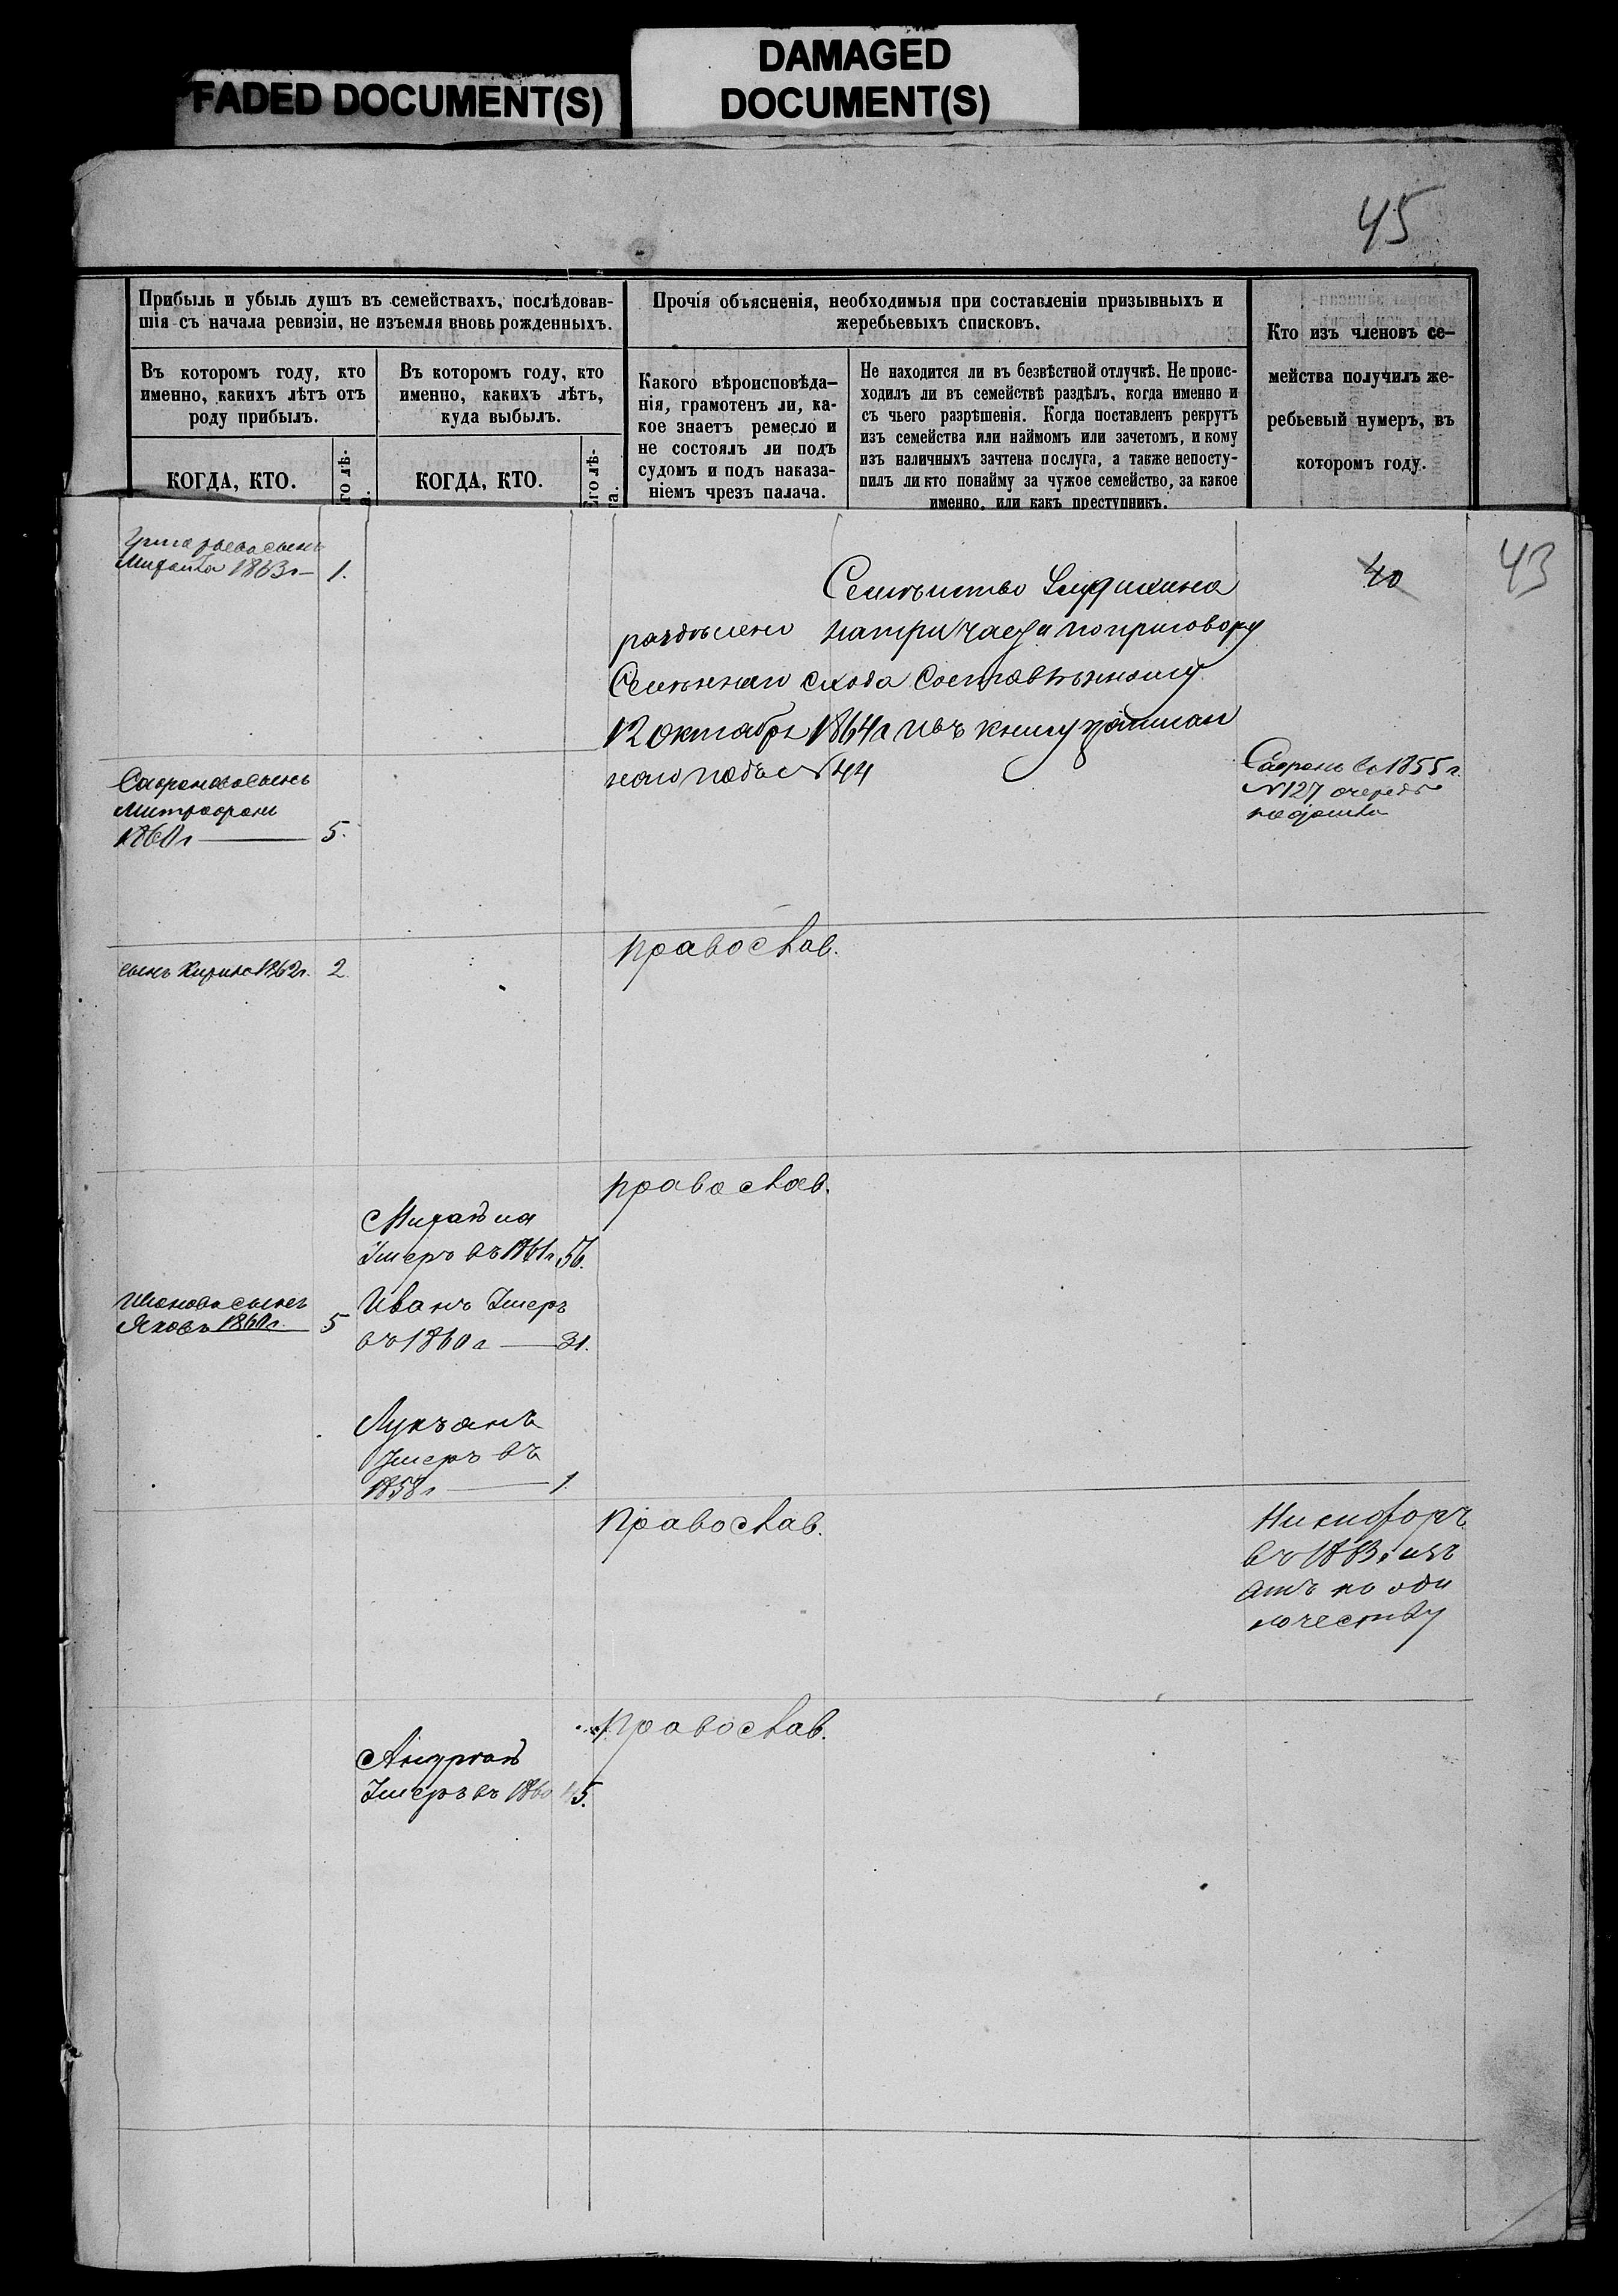 FADED DOCUMENT(S)
DAMAGED
DOCUMENT(S)
45
Прибыль и убыль душъ въ семействахъ, послѣдовав-
шія съ начала ревизіи, не изъемля вновь рожденныхъ.
Въ которомъ году, кто
именно, какихъ лѣтъ отъ
роду прибылъ.
КОГДА, КТО.
Въ которомъ году, кто
именно, какихъ лѣтъ,
куда выбылъ.
КОГДА, КТО.
Прочія объясненія, необходимыя при составленіи призывныхъ и
жеребьевыхъ списковъ.
Какого вѣроисповѣда-
нія, грамотенъ ли, ка-
кое знаетъ ремесло и
не состоялъ ли подъ
судомъ и подъ наказа-
ніемъ чрезъ палача.
Не находится ли въ безвѣстной отлучкѣ. Не проис-
ходилъ ли въ семействѣ раздѣлъ, когда именно и
съ чьего разрѣшенія. Когда поставленъ рекрутъ
изъ семейства или наймомъ или зачетомъ, и кому
изъ наличныхъ зачтена послуга, а также непосту-
пилъ ли кто понайму за чужое семейство, за какое
именно, или какъ преступникъ.
Кто изъ членовъ се-
мейства получилъ же-
ребьевый нумеръ, въ
которомъ году.
сынъ
Михайла 1863 г 1.
40
43
Семѣйство
раздѣлено на три части по приговору
схода
12 октября 1864 г и въ книгу записан
ного подъ № 44
Сафронова сынъ
Митрофанъ
1860 г 5.
Сафронъ въ 1855 г.
№ 127 очередь
сынъ 1862 г. 2
православ.
православ.
Умеръ въ 1861 г 56.
Иванова сынъ
Яковъ 1860 г. 5
Иванъ Умеръ
въ 1860 г 31.
Лукъянъ
Умеръ въ
1858 г 1.
Православ.
Никифоръ
въ 1863 г изъ
ятъ по оди
ночеству
Православ.
Умеръ въ 1860 45.